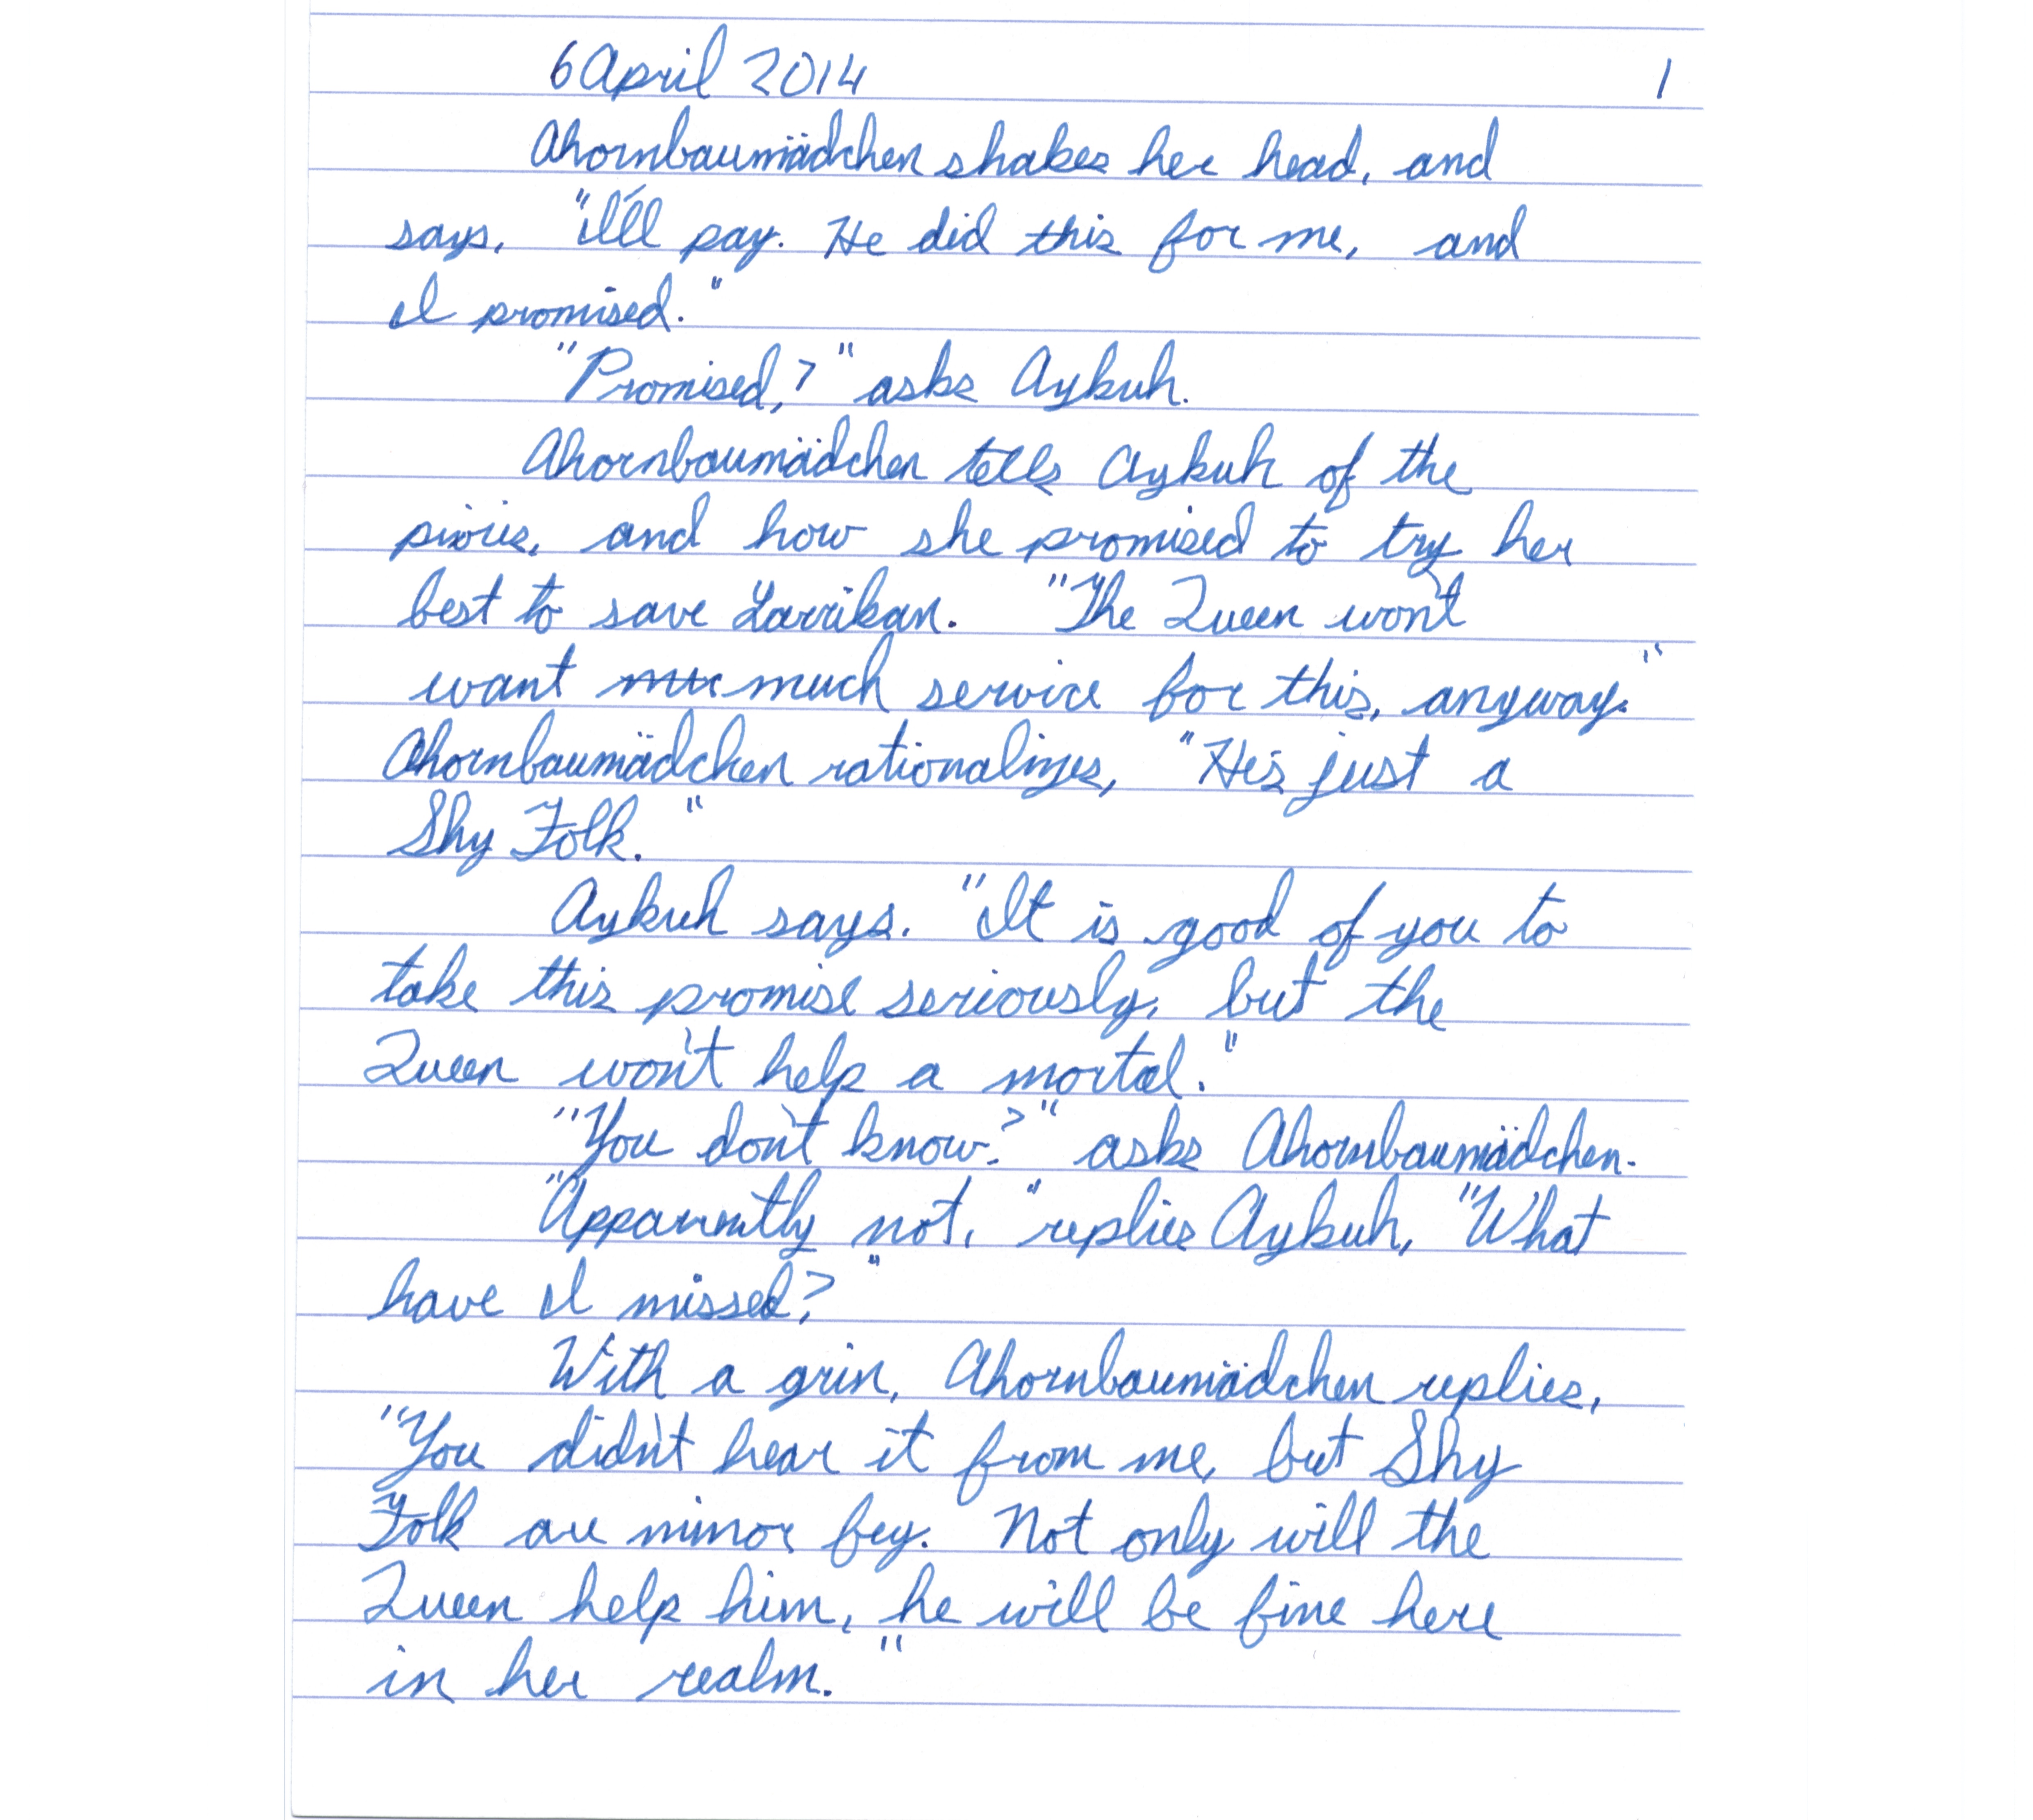 6 April 2014 1
Ahornbaumädchen shakes her head, and
says, "I'll pay. He did this for me, and
I promised."
"Promised,?" asks Aykuh.
Ahornbaumädchen tells Aykuh of the
pixies, and how she promised to try her
best to save Larrikan. "The Queen won't
want muc much service for this, anyway."
Ahornbaumädchen rationalizes, "He's just a
Shy Folk."
Aykuh says. "It is good of you to
take this promise seriously, but the
Queen won't help a mortal."
"You don't know?" asks Ahornbaumädchen.
"Apparently not," replies Aykuh, "What
have I missed?"
With a grin, Ahornbaumädchen replies,
"You didn't hear it from me, but Shy
Folk are minor fey. Not only will the
Queen help him, he will be fine here
in her realm."